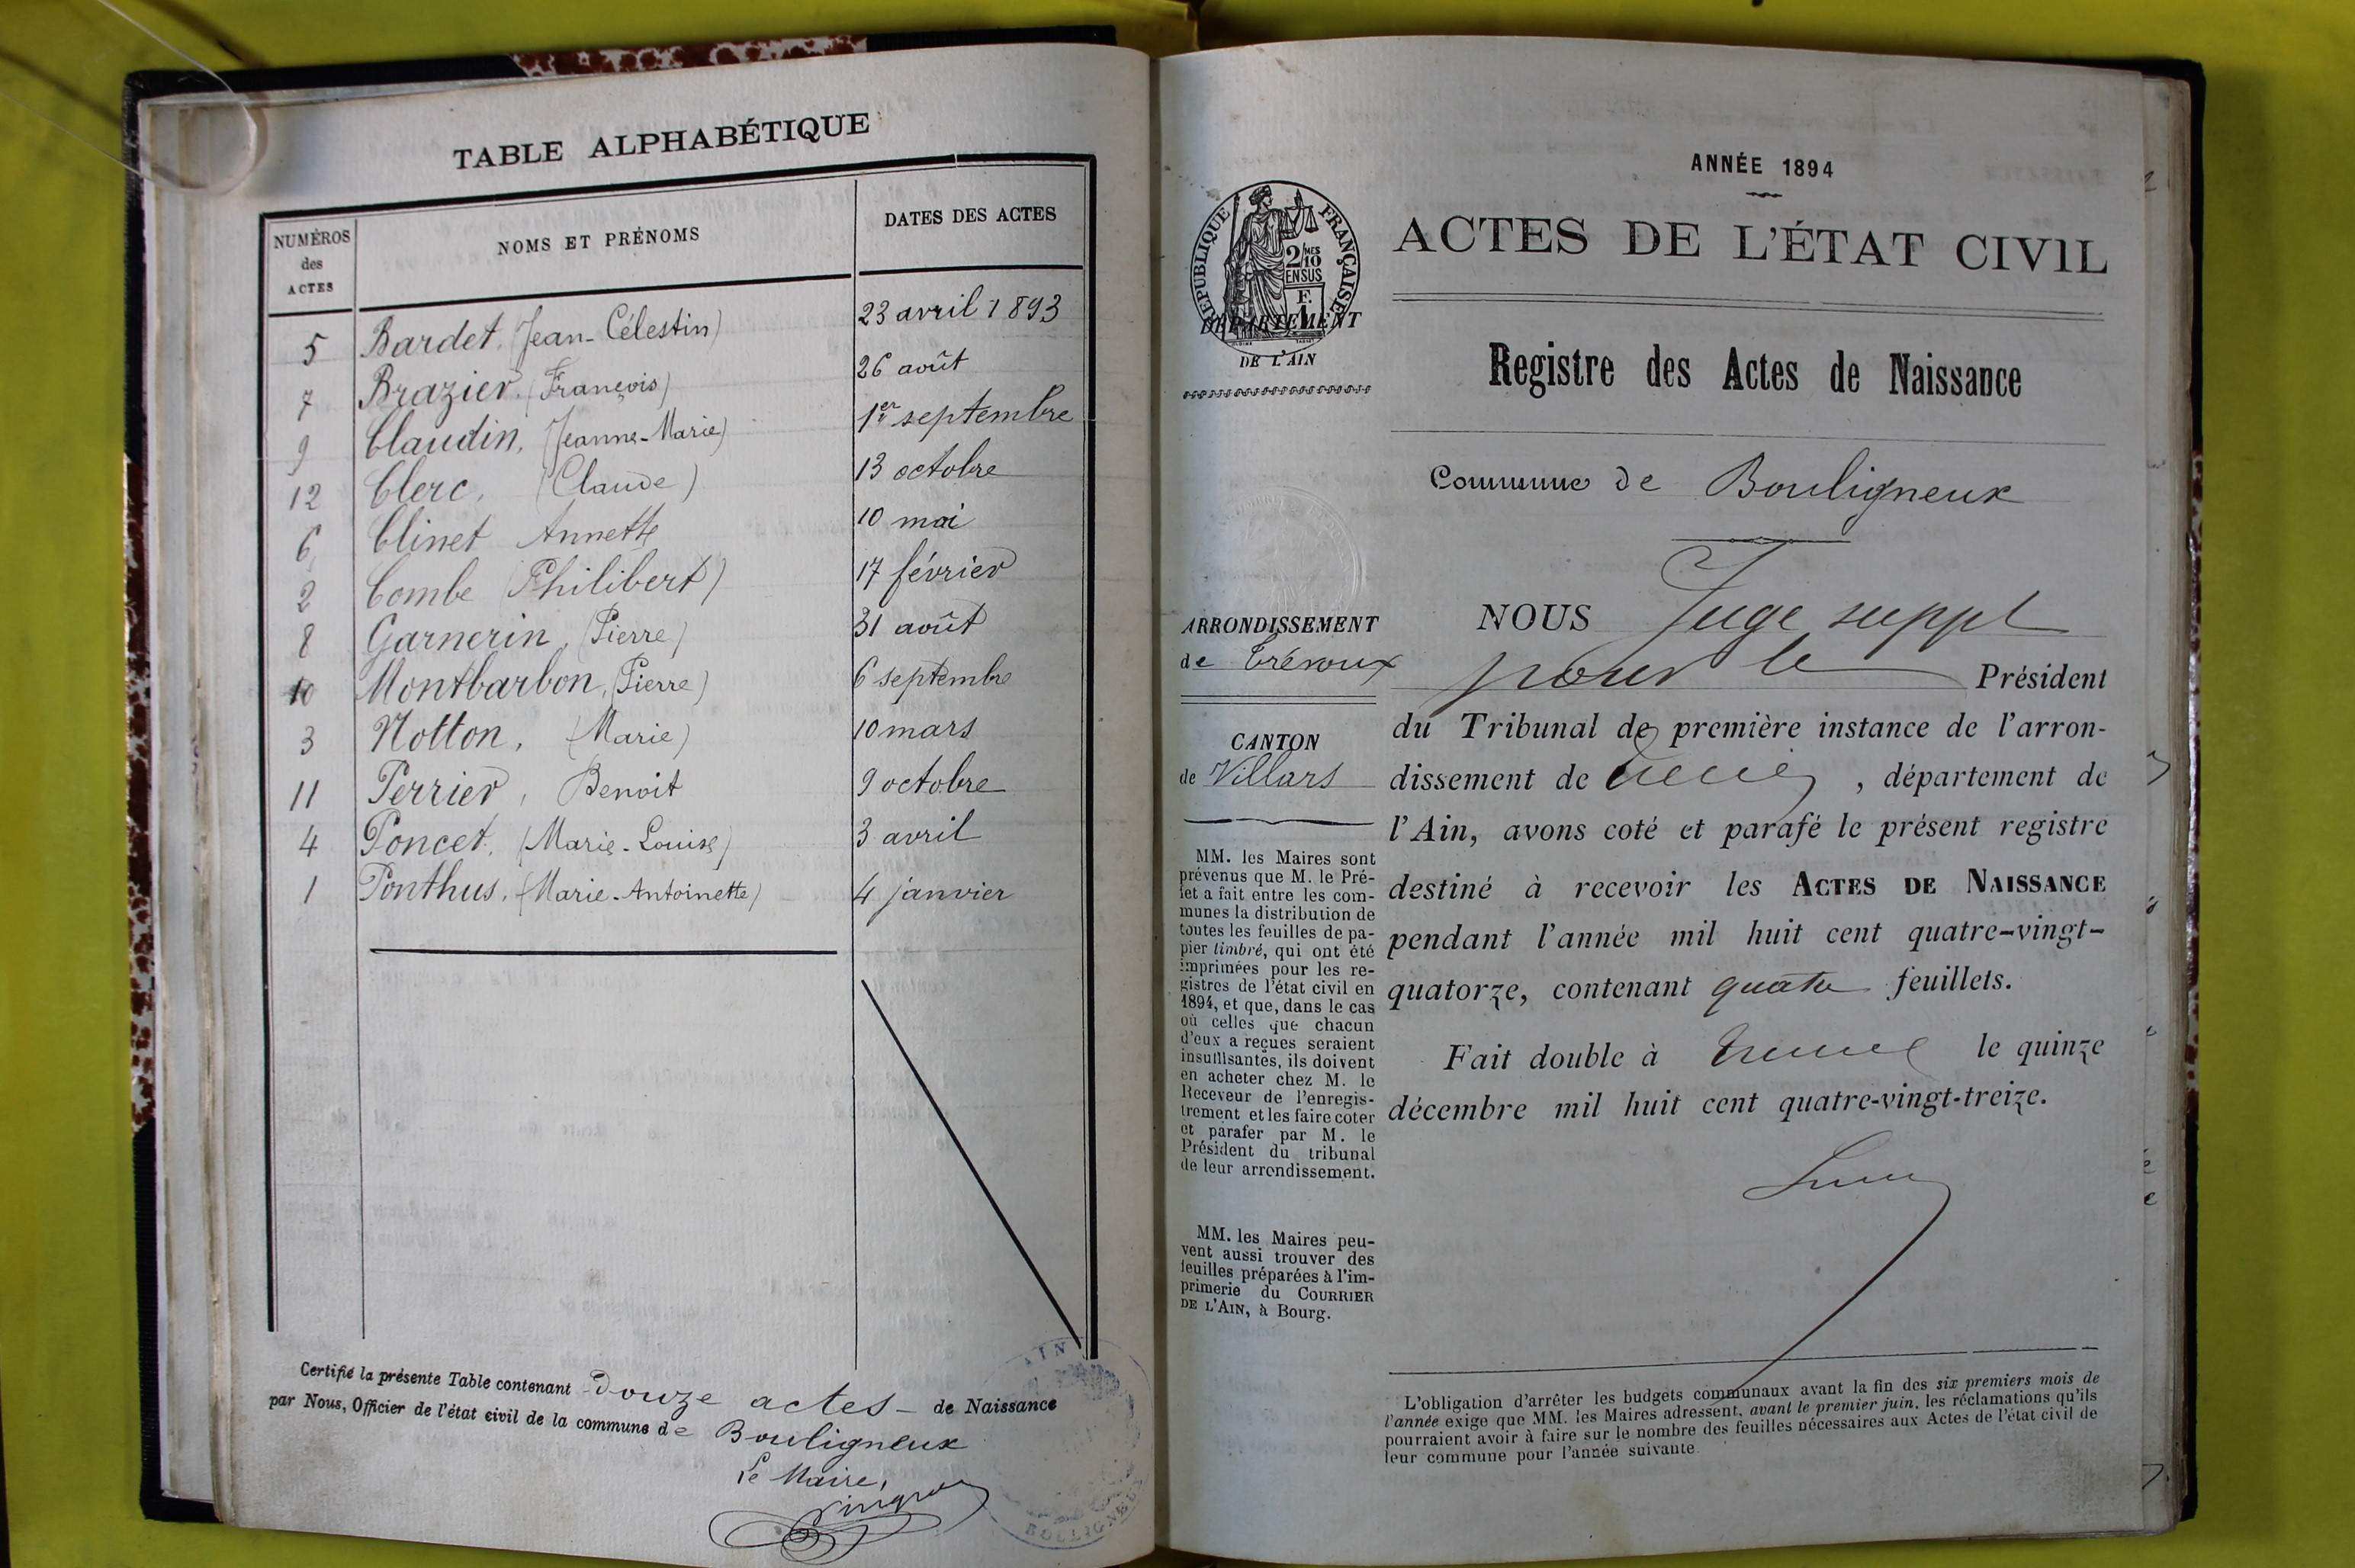 TABLE ALPHABÉTIQUE
NUMÉROS des ACTES NOMS ET PRÉNOMS DATES DES ACTES
5 Bardet, (Jean-Célestin) 23 avril 1893
7 Brazier, (François) 26 août
9 Claudin, (Jeanne-Marie) 1er septembre
12 Clerc, (Claude) 13 octobre
6 Clinet Annette 10 mai
2 Combe (Philibert) 17 février
8 Garnerin, (Pierre) 31 août
10 Montbarbon, (Pierre) 6 septembre
3 Notton, (Marie) 10 mars
11 Perrier, Benoit 9 octobre
4 Poncet, (Marie-Louise) 3 avril
1 Ponthus, (Marie-Antoinette) 4 janvier
Certifié la présente Table contenant douze actes - de Naissance
par Nous, Officier de l'état civil de la commune de Bouligneux
Le Maire,
AIN
BOULIGNEUX
ANNÉE 1894
ACTES DE L'ÉTAT CIVIL
RÉPUBLIQUE FRANÇAISE
2/10 MES
EN SUS
F.
1
DÉPARTEMENT
DE L'AIN
Registre des Actes de Naissance
Commune de Bouligneux
ARRONDISSEMENT
de Trévoux
CANTON
de Villars
MM. les Maires sont
prévenus que M. le Pré-
fet a fait entre les com-
munes la distribution de
toutes les feuilles de pa-
pier timbré, qui ont été
imprimées pour les re-
gistres de l'état civil en
1894, et que, dans le cas
où celles que chacun
d'eux a reçues seraient
insuffisantes, ils doivent
en acheter chez M. le
Receveur de l'enregis-
trement et les faire coter
et parafer par M. le
Président du tribunal
de leur arrondissement.
MM. les Maires peu-
vent aussi trouver des
feuilles préparées à l'im-
primerie du COURRIER
DE L'AIN, à Bourg.
NOUS Juge suppl
pour le Président
du Tribunal de première instance de l'arron-
dissement de , département de
l'Ain, avons coté et parafé le présent registre
destiné à recevoir les ACTES DE NAISSANCE
pendant l'année mil huit cent quatre-vingt-
quatorze, contenant quatre feuillets.
Fait double à Trévoux le quinze
décembre mil huit cent quatre-vingt-treize.
L'obligation d'arrêter les budgets communaux avant la fin des six premiers mois de
l'année exige que MM. les Maires adressent, avant le premier juin, les réclamations qu'ils
pourraient avoir à faire sur le nombre des feuilles nécessaires aux Actes de l'état civil de
leur commune pour l'année suivante.